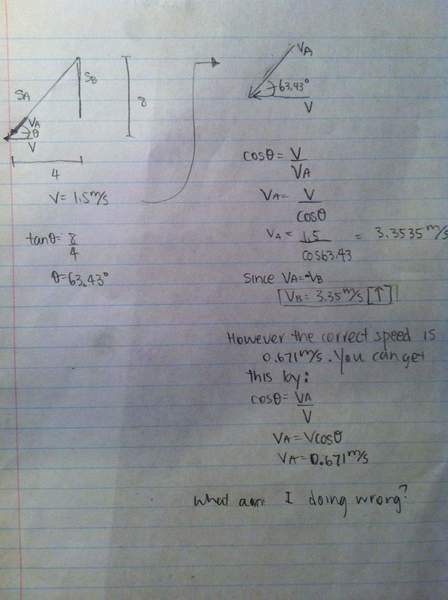 SA
SB
8
VA
θ
V
4
V = 1.5 m/s
tanθ = 8/4
θ = 63.43°
VA
63.43°
V
cosθ = V/VA
VA = V/cosθ
VA = 1.5/cos63.43 = 3.3535 m/s
since VA = -VB
VB = 3.35 m/s [↑]
However the correct speed is
0.671 m/s. You can get
this by:
cosθ = VA/V
VA = Vcosθ
VA = 0.671 m/s
What am I doing wrong?